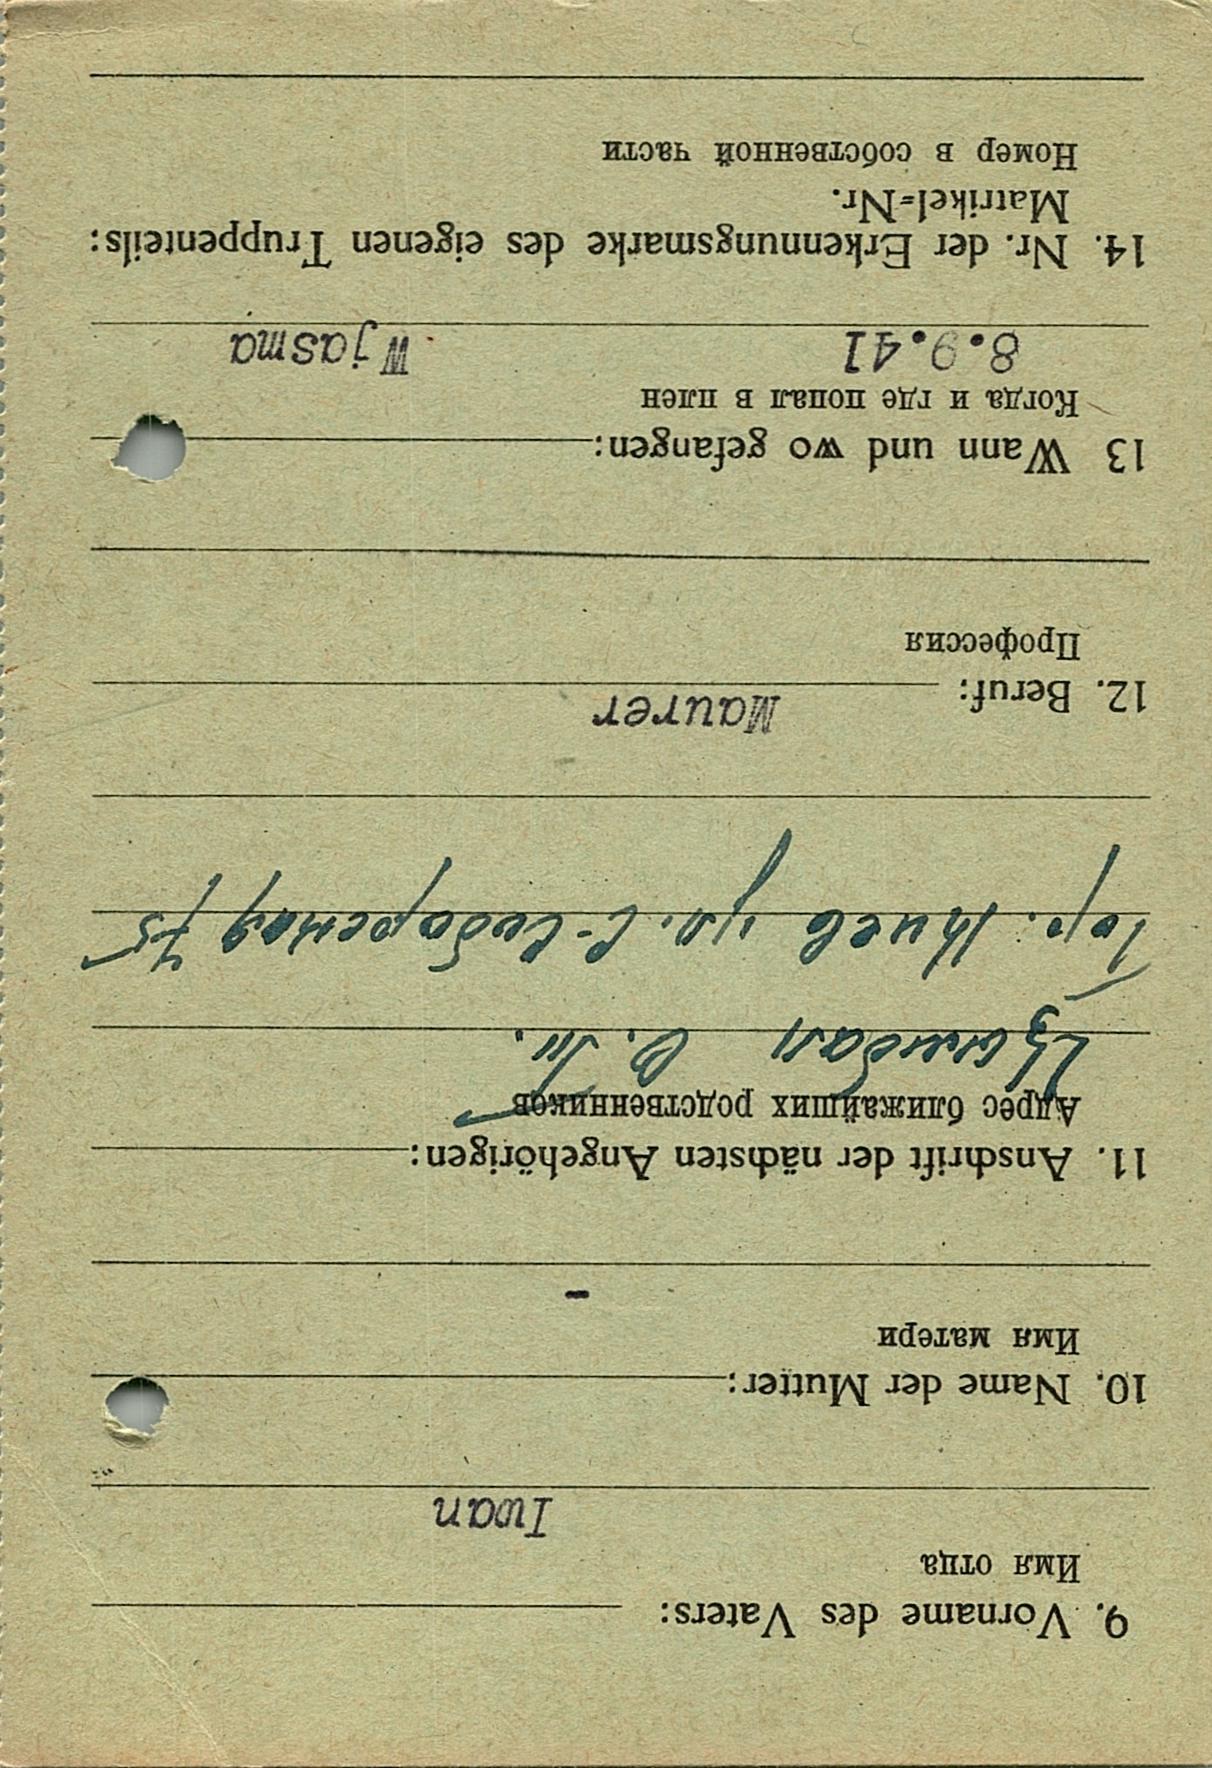 9. Vorname des Vaters:
Имя отца
Iwan
10. Name der Mutter:
Имя матери
-
11. Anschrift der nächsten Angehörigen:
Адрес ближайших родственников
Цымбал
Гор. Киев ул.
75
12. Beruf:
Maurer
Профессия
13 Wann und wo gefangen:
Когда и где попал в плен
8.9.41 Wjasma
14. Nr. der Erkennungsmarke des eigenen Truppenteils:
Matrikel=Nr.
Номер в собственной части